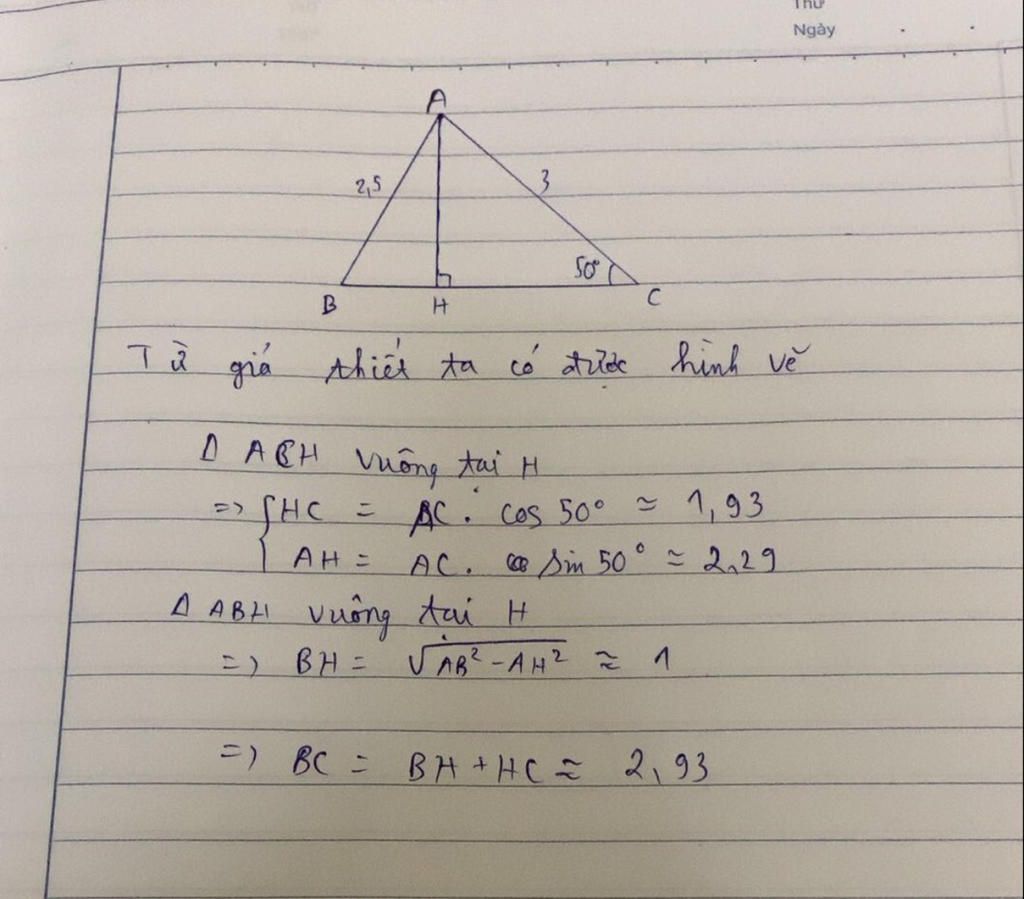 Thứ
Ngày
A
2,5
3
50°
B
H
C
Từ giả thiết ta có được hình vẽ
Δ ACH vuông tại H
=> { HC = AC. cos 50° ≈ 1,93
AH = AC. sin 50° ≈ 2,29
Δ ABH vuông tại H
=> BH = √AB² - AH² ≈ 1
=> BC = BH + HC ≈ 2,93